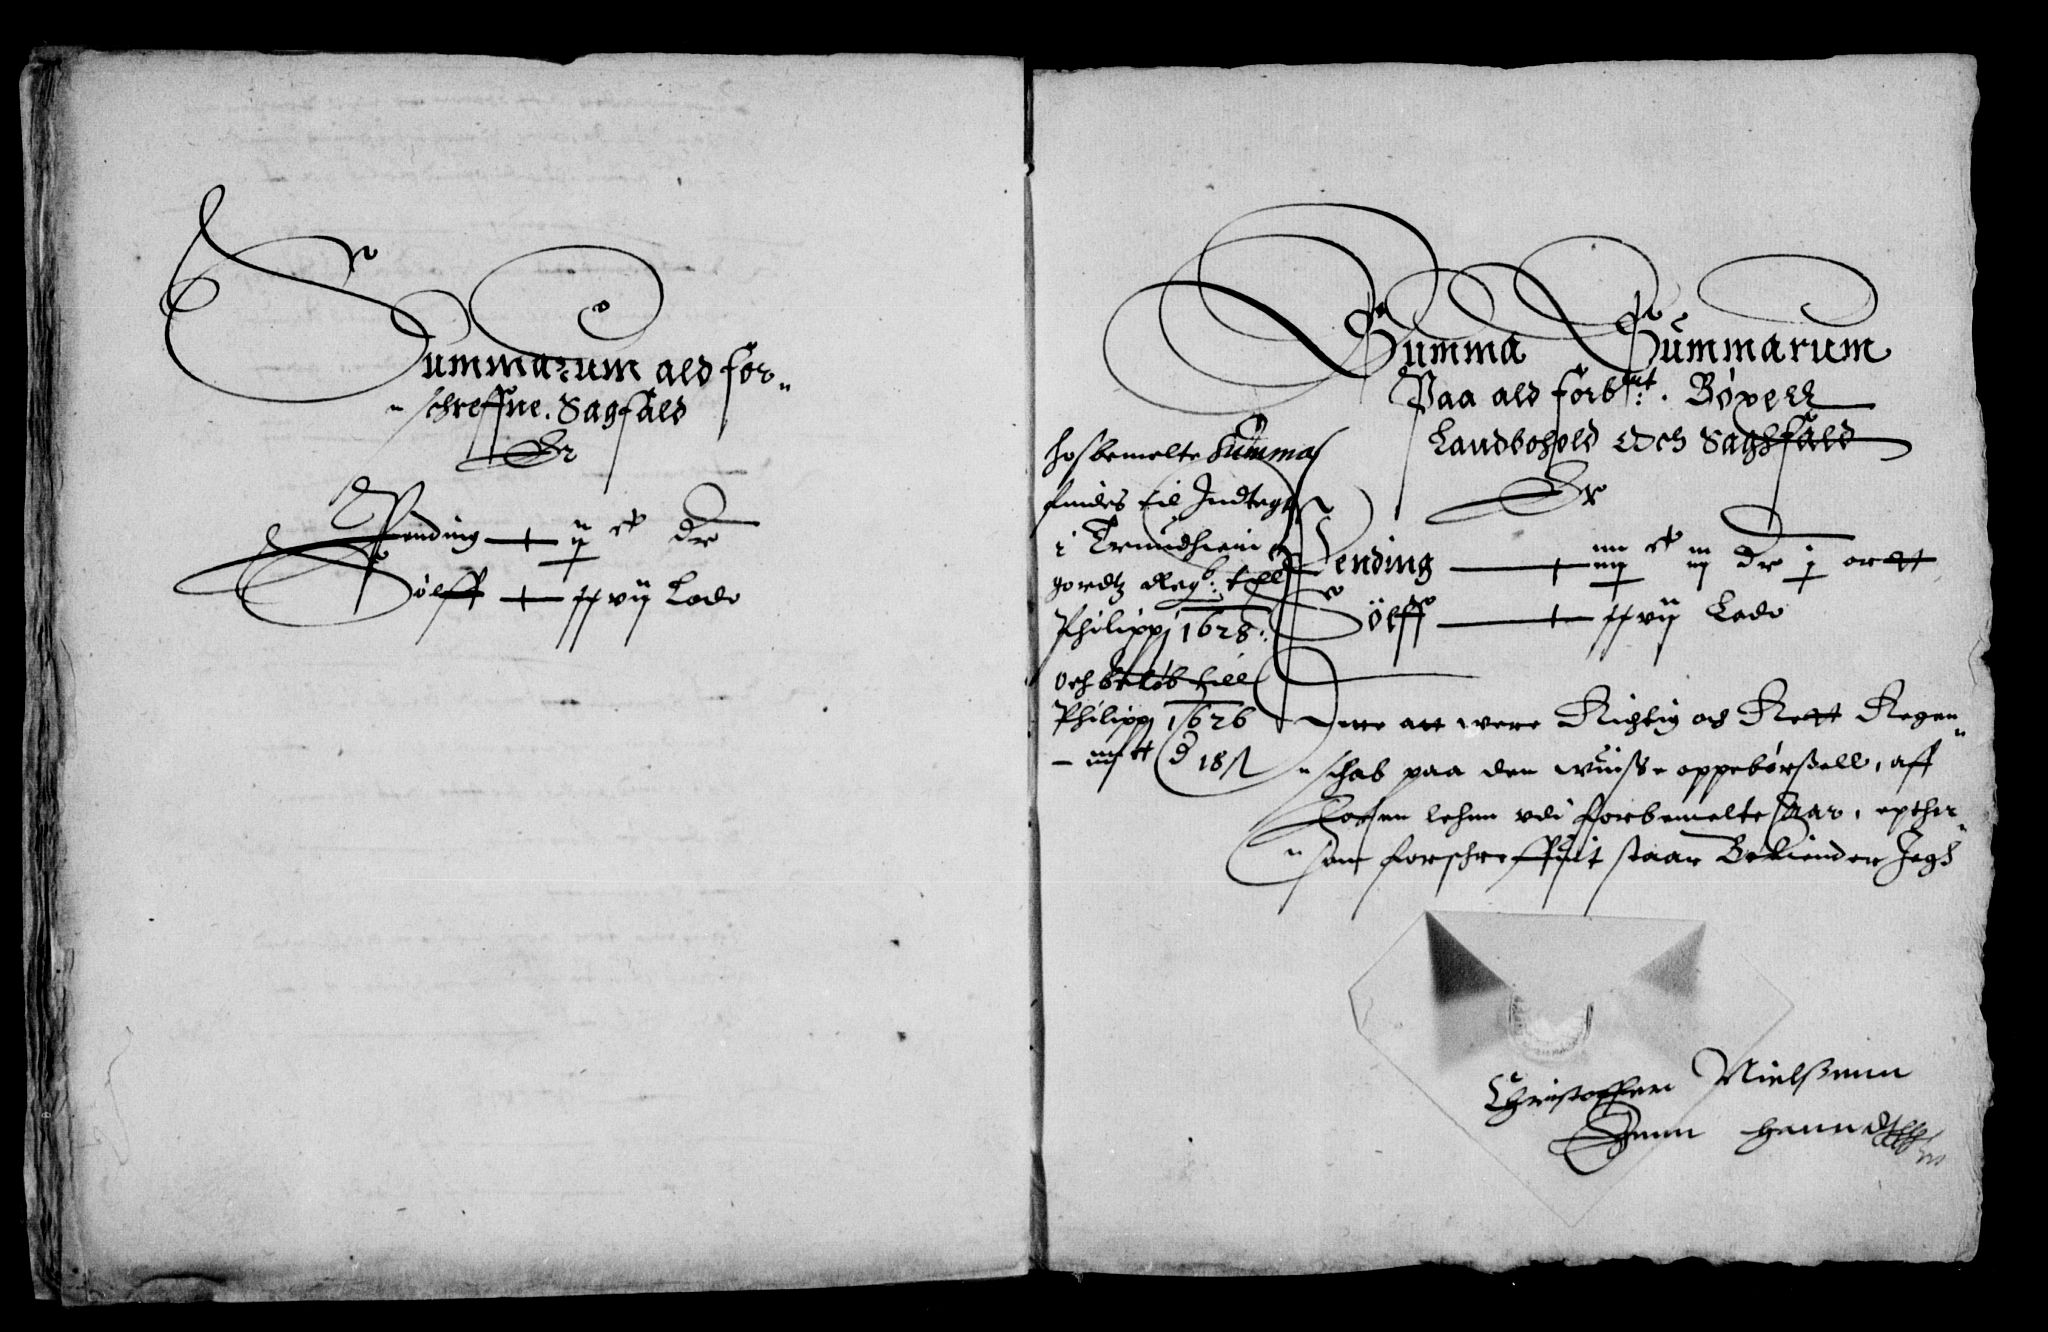 Summarum ald for„
„schreffne. Sagfald
Er
Pending — ij c dr
Sölff — xxvij Lode
Summa Summarum
Paa ald forb:nt. Böxell
Landbohold Och Saghfald
Er
Pending — iiij c iij dr j ortt
Sölff — xxvij Lode
hosbemelte Summa
findes til Indtegt
i Trundhiem
gordtz Regb: till
Philippj 1628:
och beløb till
Philippj 1626
Dette att were Richtig och Rett Regen„
„schab paa den wuisse oppebørßell, aff
Fosen lehnn vdi forbemelte Aar, epther„
„som forschreffuit staar Bekiender Jegh
Christoffer Nielßenn
Egenn Hanndt